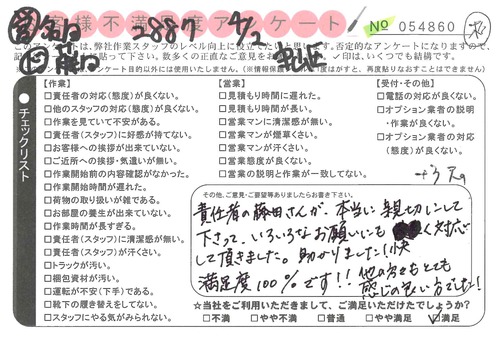 お客様不満足度アンケート
2887 4/2
No 054860
このアンケートは、弊社作業スタッフのレベル向上に役立てたいと思います。否定的なアンケートになりますので、
チェックリスト
【作業】
□責任者の対応(態度)が良くない。
□他のスタッフの対応(態度)が良くない。
□作業を見ていて不安がある。
□責任者(スタッフ)に好感が持てない。
□お客様への挨拶が出来ていない。
□ご近所への挨拶・気遣いが無い。
□作業開始前の内容確認がなかった。
□作業開始時間が遅れた。
□荷物の取り扱いが雑である。
□お部屋の養生が出来ていない。
□作業時間が長すぎる。
□責任者(スタッフ)に清潔感が無い。
□責任者(スタッフ)が汗くさい。
□トラックが汚い。
□梱包資材が汚い。
□運転が不安(下手)である。
□靴下の履き替えをしてない。
□スタッフにやる気がみられない。
【営業】
□見積もり時間に遅れた。
□見積もり時間が長い。
□営業マンに清潔感が無い。
□営業マンが煙草くさい。
□営業マンが汗くさい。
□営業態度が良くない。
□営業の説明と作業が一致してない。
【受付・その他】
□電話の対応が良くない。
□オプション業者の説明
・作業が良くない。
□オプション業者の対応
(態度)が良くない。
その他、ご意見・ご要望等ありましたらお書き下さい。
責任者の藤田さんが、本当に親切にして
下さって、いろいろなお願いにも 快く対応
して頂きました。助かりました!
満足度100%です!! 他の方々もとても
感じの良い方でした!
☆当社をご利用いただきまして、ご満足いただけたでしょうか?
□不満 □やや不満 □普通 □やや満足 ☑満足